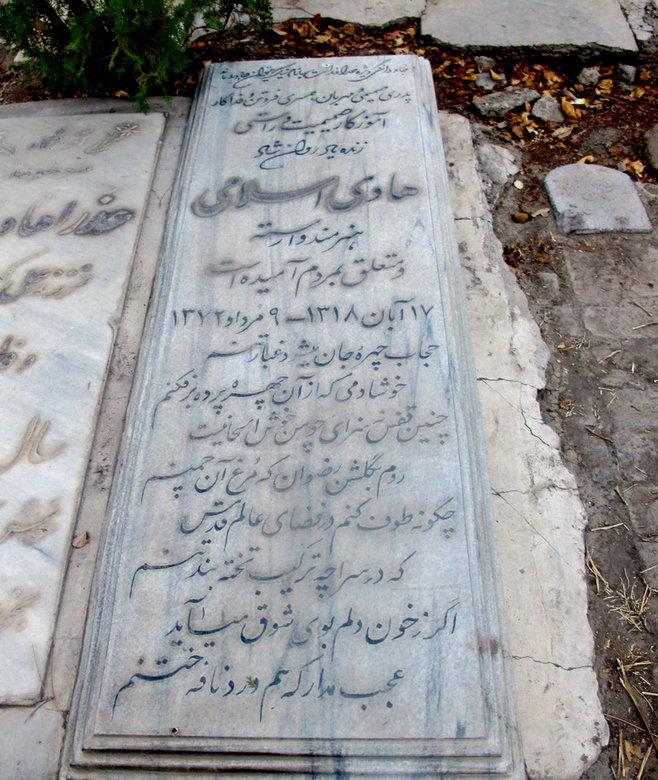 پدری صمیمی و مهربان، همسری فروتن و فداکار
آموزگار صمیمیت و راستی
زنده یاد روان شاد
هادی اسلامی
هنرمند وارسته
و متعلق بمردم آرمیده است
۱۷ آبان ۱۳۱۸ – ۹ مرداد ۱۳۷۲
حجاب چهره جان میشود غبار تنم
خوشا دمی که از آن چهره پرده برفکنم
چنین قفس نه سزای چو من خوش الحانیست
روم بگلشن رضوان که مرغ آن چمنم
چگونه طوف کنم در فضای عالم قدس
که در سراچه ترکیب تخته بند تنم
اگر ز خون دلم بوی شوق میآید
عجب مدار که هم درد نافه ختنم
عذرا